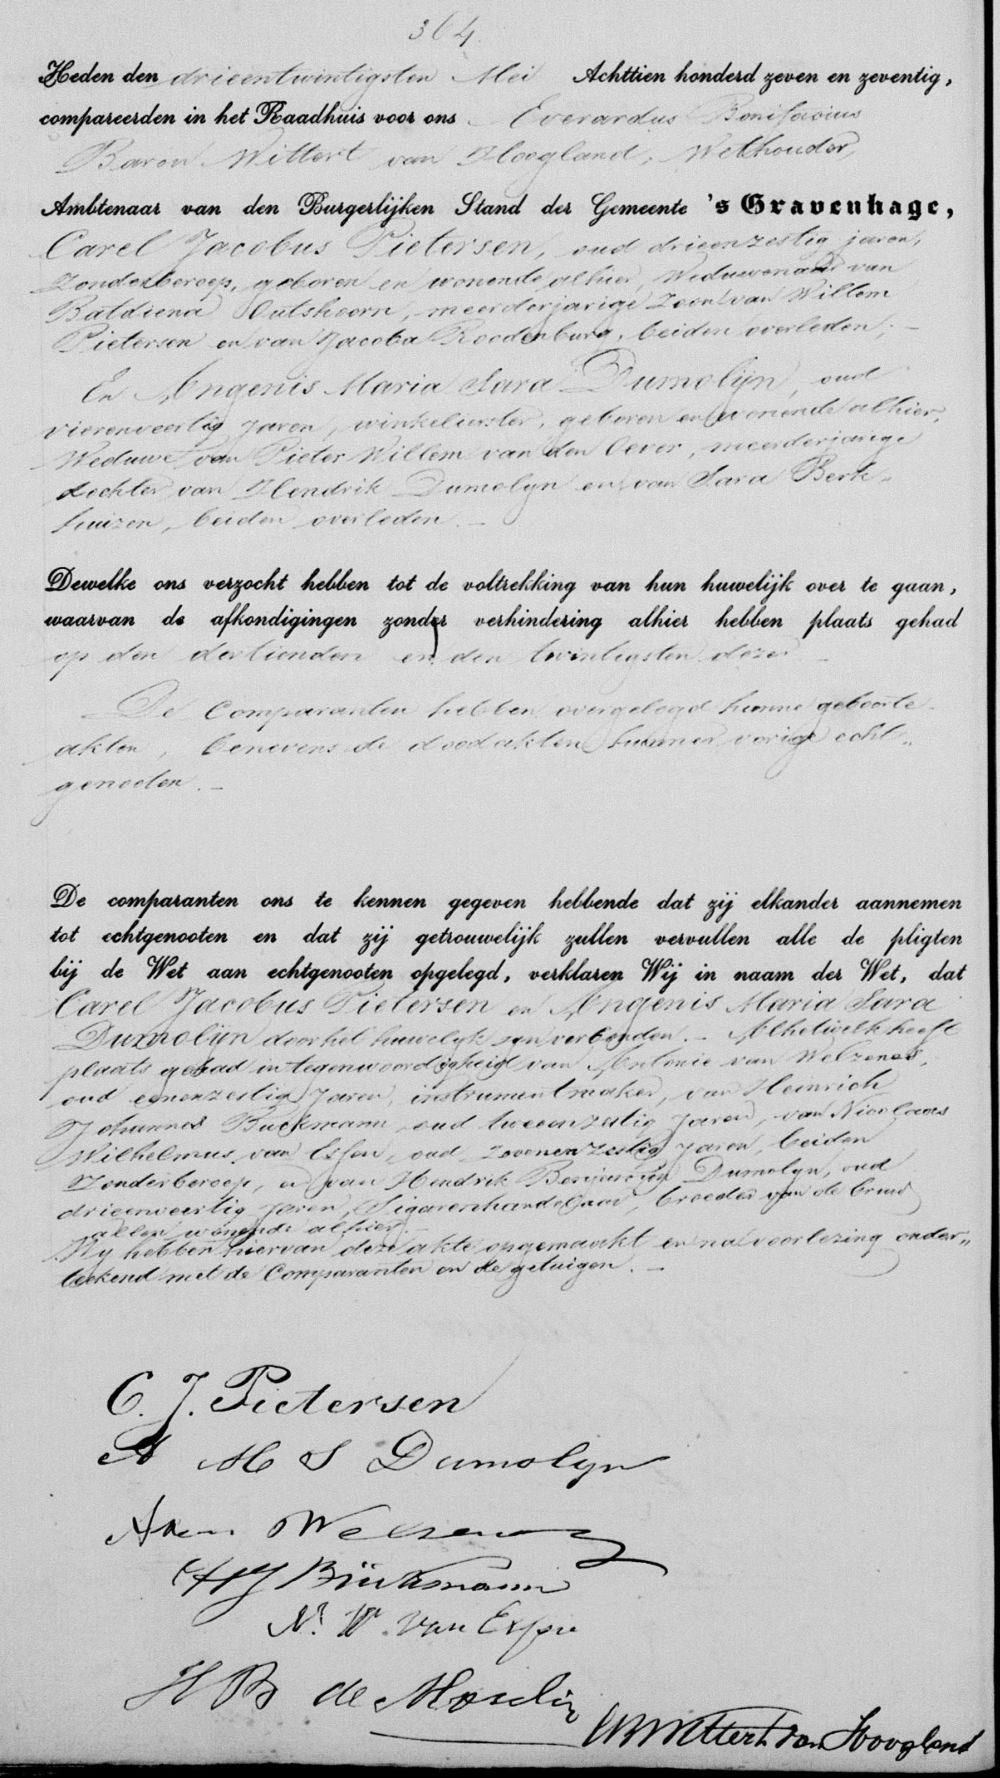 364.
Heden den drieentwintigsten Mei Achttien honderd zeven en zeventig,
compareerden in het Raadhuis voor ons Everardus Bonifacius
Baron Wittert van Hoogland, Wethouder,
Ambtenaar van den Burgerlijken Stand der Gemeente 's Gravenhage,
Carel Jacobus Pietersen, oud drieenzestig jaren,
zonder beroep, geboren en wonende alhier, Weduwenaar van
Batdiena Outshoorn, meerderjarige Zoon van Willem
Pietersen en van Jacoba Roodenburg, beiden overleden; –
En Angenis Maria Sara Dumolijn, oud
vierenveertig Jaren, winkelierster, geboren en wonende alhier,
Weduwe van Pieter Willem van den Oever, meerderjarige
dochter van Hendrik Dumolyn en van Sara Berk-
huizen, beiden overleden. –
Dewelke ons verzocht hebben tot de voltrekking van hun huwelijk over te gaan,
waarvan de afkondigingen zonder verhindering alhier hebben plaats gehad
op den dertienden en den twintigsten dezer –
De Comparanten hebben overgelegd hunne geboorte
akten, benevens de doodakten hunner vorige echt„
genooten. –
De comparanten ons te kennen gegeven hebbende dat zij elkander aannemen
tot echtgenooten en dat zij getrouwelijk zullen vervullen alle de pligten
bij de Wet aan echtgenooten opgelegd, verklaren Wij in naam der Wet, dat
Carel Jacobus Pietersen en Angenis Maria Sara
Dumolijn door het huwelijk zyn verbonden. – Alhetwelk heeft
plaats gehad in tegenwoordigheid van Antonie van Welzenes,
oud eenenzestig Jaren, instrumentmaker, van Heinrich
Johannes Buckmann, oud tweeenzestig Jaren, van Nicolaas
Wilhelmus van Essen, oud zevenenzestig Jaren, beiden
Zonder beroep, en van Hendrik Dumolyn, oud
drieenveertig Jaren, Sigarenhandelaar, broeder van de bruid
allen wonende alhier –
Wij hebben hiervan deze akte opgemaakt en na voorlezing onder„
teekend met de Comparanten en de getuigen. –
C. J. Pietersen
A M S Dumolyn
A van Welzenes
H J Bückmann
N. W. van Essen
H B de Moulin
Wittert van Hoogland